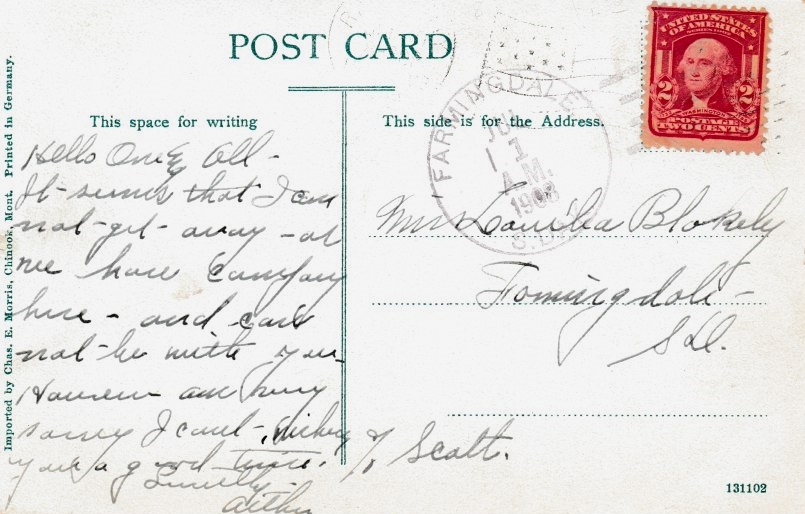 POST CARD
UNITED STATES
OF AMERICA
SERIES 1902
2 2
POSTAGE
TWO CENTS
This space for writing
This side is for the Address.
FARMINGDALE
JUL
1
A.M.
1908
S.D.
Hello One & All -
It seems that I can
not get away - as
we have Company
here - and can
not be with you
However am very
sorry I cant - Wishing
you a good time.
Mrs Blakely
Farmingdale -
S.D.
% Scott.
Imported by Chas. E. Morris, Chinook, Mont. Printed in Germany.
131102